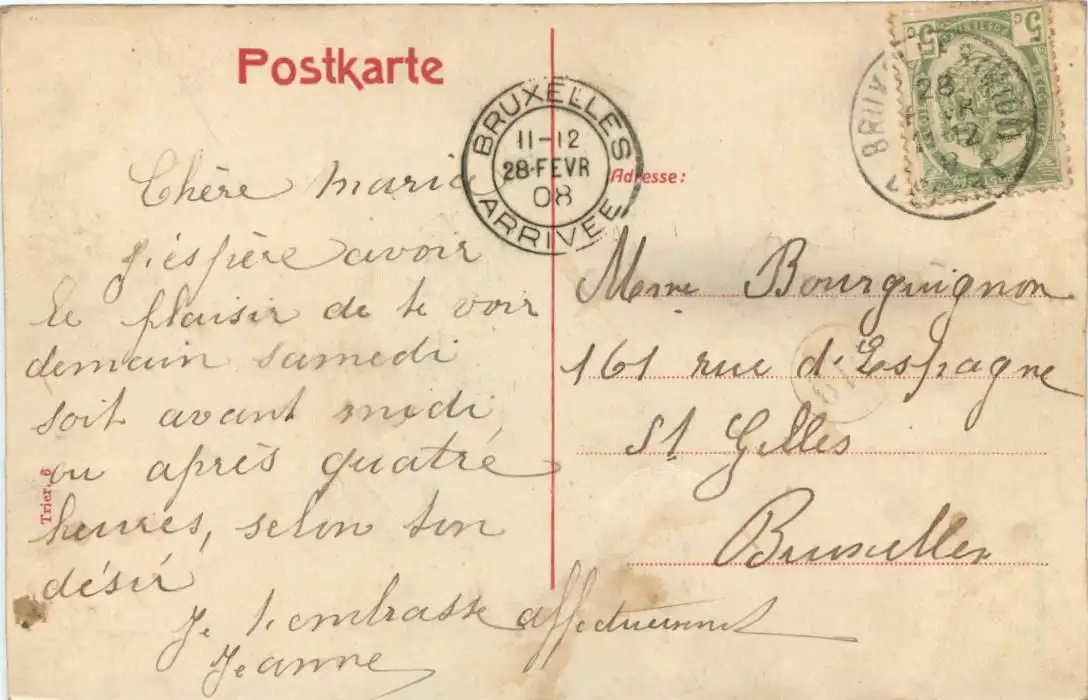 Postkarte
BRUXELLES
11-12
28·FEVR
08
ARRIVEE
5 5
BRUX
28
12
Chère Marie
J'éspère avoir
le plaisir de te voir
demain samedi
soit avant midi
ou après quatre
heures, selon ton
désir
Je t'embrasse affectueusement
Jeanne
Trier. 6
Adresse:
Mme Bourguignon
161 rue d'Espagne
St Gilles
Bruxelles